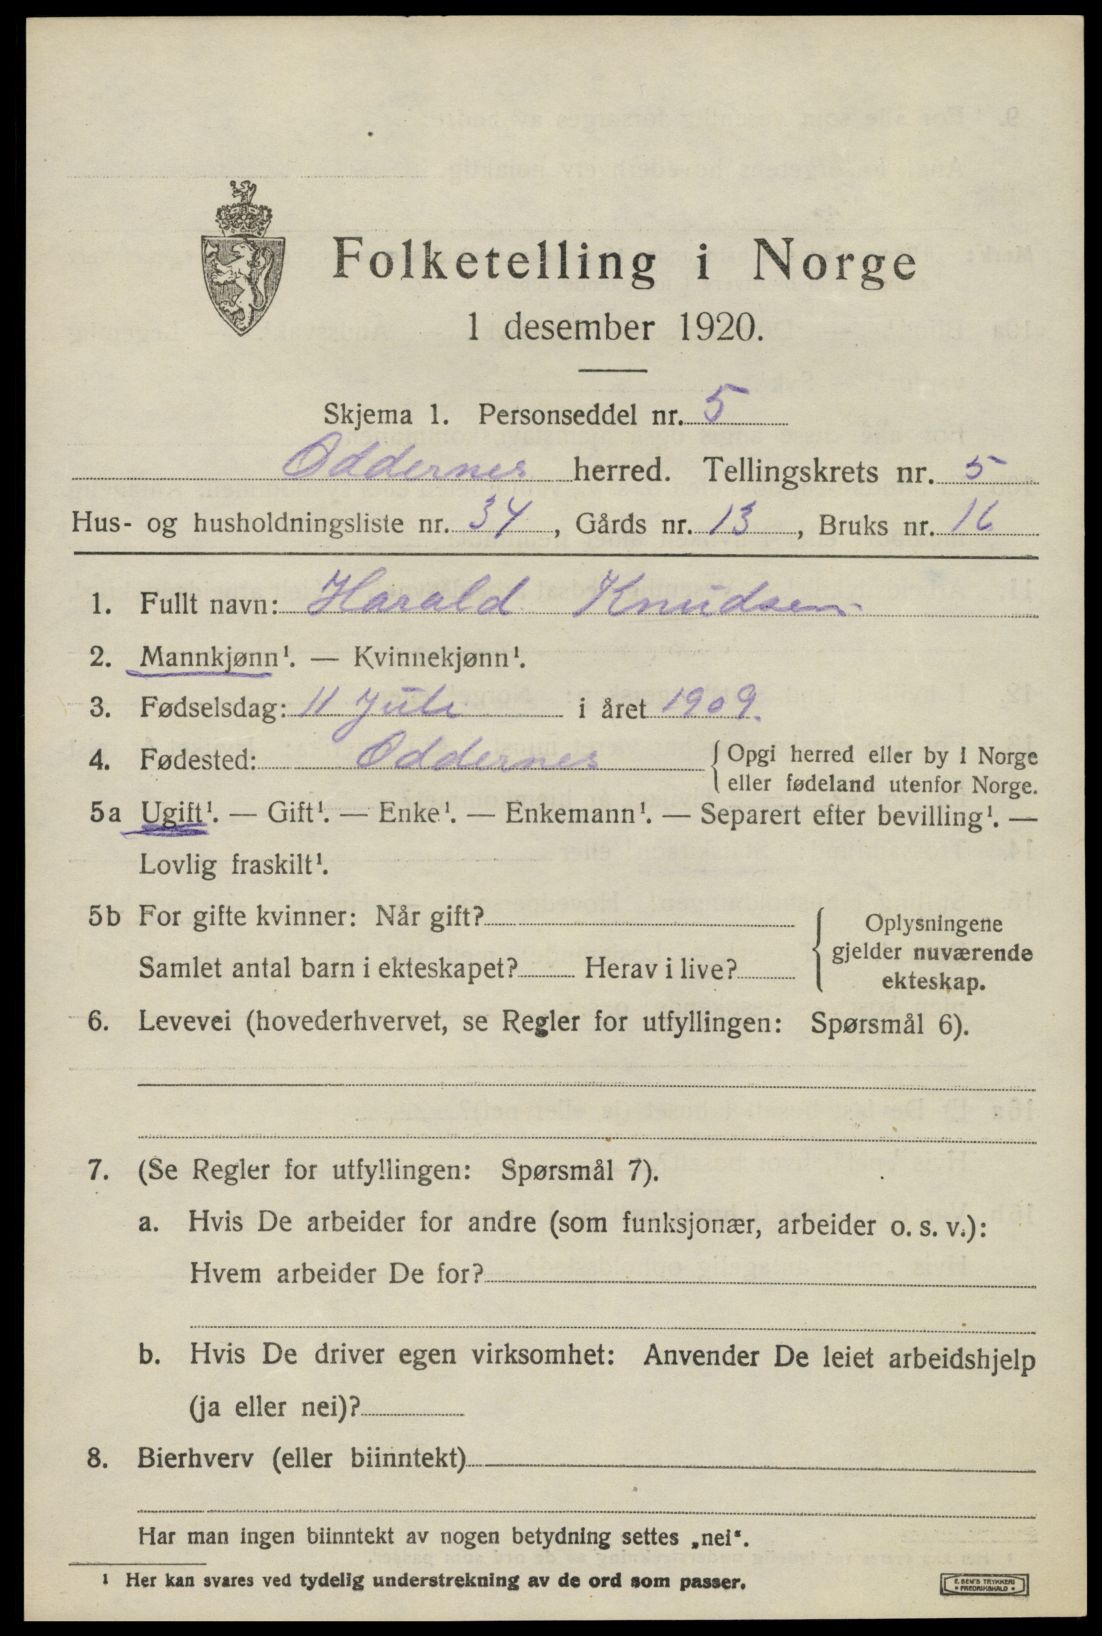 Folketelling i Norge
1 desember 1920.
Skjema 1. Personseddel nr. 5
Oddernes herred. Tellingskrets nr. 5
Hus- og husholdningsliste nr. 34, Gårds nr. 13, Bruks nr. 16
1. Fullt navn: Harald Knudsen
2. Mannkjønn¹. — Kvinnekjønn¹.
3. Fødselsdag: 11 Juli i året 1909.
4. Fødested: Oddernes { Opgi herred eller by i Norge
eller fødeland utenfor Norge.
5a Ugift¹. — Gift¹. — Enke¹. — Enkemann¹. — Separert efter bevilling¹. —
Lovlig fraskilt¹.
5b For gifte kvinner: Når gift?
Samlet antal barn i ekteskapet? Herav i live?
{ Oplysningene
gjelder nuværende
ekteskap.
6. Levevei (hovederhvervet, se Regler for utfyllingen: Spørsmål 6).
7. (Se Regler for utfyllingen: Spørsmål 7).
a. Hvis De arbeider for andre (som funksjonær, arbeider o. s. v.):
Hvem arbeider De for?
b. Hvis De driver egen virksomhet: Anvender De leiet arbeidshjelp
(ja eller nei)?
8. Bierhverv (eller biinntekt)
Har man ingen biinntekt av nogen betydning settes „nei“.
¹ Her kan svares ved tydelig understrekning av de ord som passer.
E. SEM'S TRYKKERI
• FREDRIKSHALD •